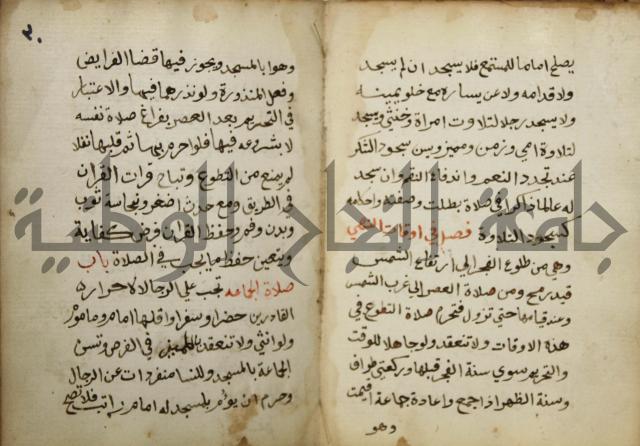 يصلح اماما للمستمع فلا يسجد ان لم يسجد
ولا قدامه ولا عن يساره مع خلو يمينه
ولا يسجد رجل لتلاوت امراة وخنثى ويسجد
لتلاوة امي وزمن ومميز ويسن سجود الشكر
عند تجدد النعم واندفاع النقم وان سجد
له عالما ذاكرا في صلاة بطلت وصفته واحكامه
كسجود التلاوة فصل في اوقات النهي
وهي من طلوع الفجر الى ارتفاع الشمس
قيد رمح ومن صلاة العصر الى غرب الشمس
وعند قيامها حتى تزول فتحرم صلاة التطوع في
هذه الاوقات ولا تنعقد ولو جاهلا للوقت
والتحريم سوى سنة الفجر قبلها وركعتي طواف
وسنة الظهر اذا جمع واعادة جماعة اقيمت
وهو
٣٠
وهو بالمسجد ويجوز فيها قضا الفرايض
وفعل المنذورة ولو نذرها فيها والاعتبار
في التحريم بعد العصر بفراغ صلاة نفسه
لا بشروعه فيها فلو احرم بها ثم قلبها نفلا
لم يمنع من التطوع وتباح قرات القران
في الطريق ومع حدث اصغر ونجاسة ثوب
وبدن وفم وحفظ القران فرض كفاية
ويتعين حفظ ما يجب في الصلاة باب
صلاة الجماعه تجب على الرجال الاحرار
القادرين حضرا وسفرا واقلها امام وماموم
ولو انثى ولا تنعقد بالمميز في الفرض وتسن
الجماعة بالمسجد وللنسا منفردات عن الرجال
وحرم ان يؤم بمسجد له امام راتب فلا تصح
جامعة النجاح الوطنية